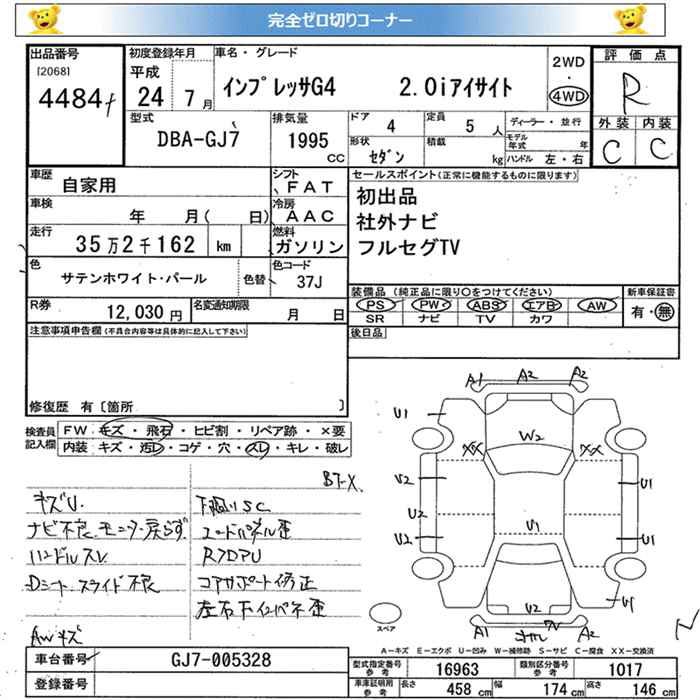 完全ゼロ切りコーナー
出品番号
[2068]
4484
初度登録年月
平成
24 7月
車名・グレード
インプレッサG4 2.0iアイサイト
2WD
・
4WD
評価点
R
外装 内装
C C
型式
DBA-GJ7
排気量
1995
CC
ドア
4
定員
5 人
ディーラー・並行
形状
セダン
積載
kg
モデル年式 年
ハンドル 左・右
車歴
自家用
シフト
FAT
車検
年 月( 日)
冷房
AAC
走行
35万2千162 km
燃料
ガソリン
色
サテンホワイト・パール
色替
色コード
37J
R券
12,030円
名変通知期限
月 日
セールスポイント(正常に機能するものに限ります)
初出品
社外ナビ
フルセグTV
装備品(純正品に限り○をつけてください)
新車保証書
PS PW ABS エアB AW
有・無
SR ナビ TV カワ
後日品
注意事項申告欄(不具合内容等は具体的に記入して下さい)
修復歴 有〔箇所 〕
検査員記入欄
FW キズ・飛石・ヒビ割・リペア跡・×要
内装 キズ・汚レ・コゲ・穴・スレ・キレ・破レ
BT-X
キズU.
ナビ不良.モニター戻らず
ハンドルスレ
Dシートスライド不良
AWキズ
下廻りSC
コアサポート修正
A1 A2 A2
U1
XX W2 XX
U2 U1
U2 U1
U2 U1
U1
U2
A1 A2
スペア
A-キズ E-エクボ U-凹み W-補修跡 S-サビ C-腐食 XX-交換済
車台番号
GJ7-005328
登録番号
型式指定番号参考
16963
類別区分番号参考
1017
車庫証明用参考
長さ 458 cm 幅 174 cm 高さ 146 cm